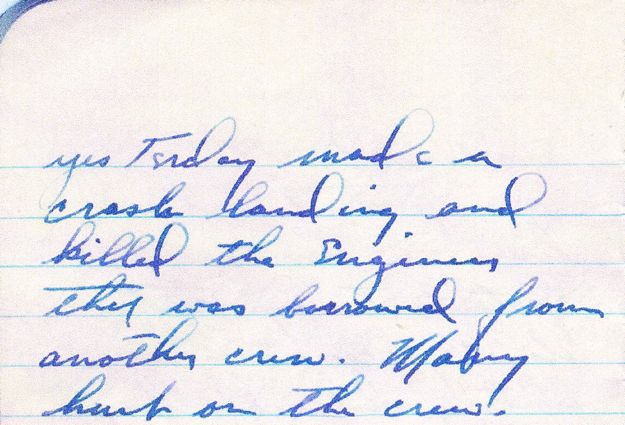 yesterday made a
crash landing and
killed the Engineer
they was borrowed from
another crew. Many
hurt on the crew.